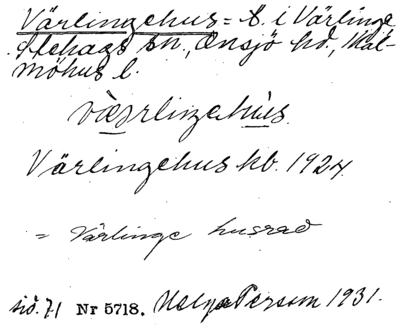 Värlingehus = t. i Värlinge
Stehags sn., Onsjö hd., Mal-
möhus l.
væ̱rliŋehu̱s.
Värlingehus kb. 1924.
= Värlinge husrad
sid. 71 Nr 5718. Helga Persson 1931.